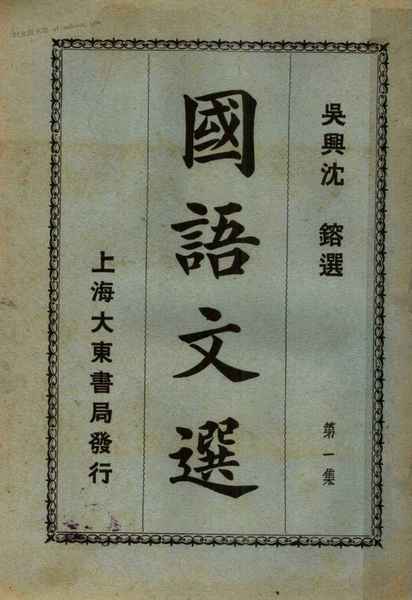 吳興沈 鎔選
第一集
國語文選
上海大東書局發行